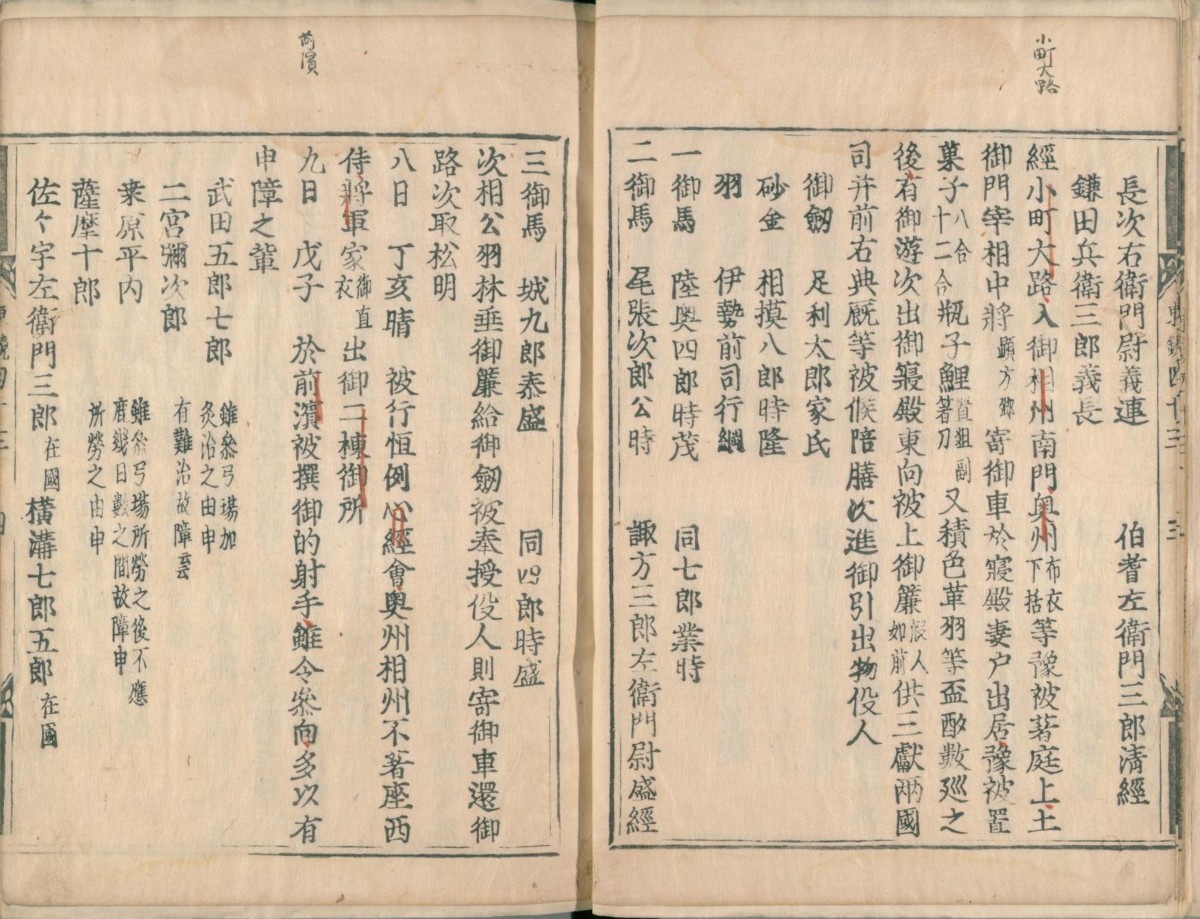 小町大路
長次右衛門尉義連 伯耆左衛門三郎清經
鎌田兵衛三郎義長
經小町大路入御相州南門奥州布衣下括等豫被著庭上土
御門宰相中將顕方卿寄御車於寝殿妻戸出居豫被置
菓子八合十二合瓶子鯉置俎副箸刀又積色革羽等盃酌數廵之
後有御游次出御寝殿東向被上御簾假人如前供三獻兩國
司并前右典厩等被候陪膳次進御引出物役人
御劔 足利太郎家氏
砂金 相摸八郎時隆
羽 伊勢前司行綱
一御馬 陸奥四郎時茂 同七郎業時
二御馬 尾張次郎公時 諏方三郎左衛門尉盛經
前濱
三御馬 城九郎泰盛 同四郎時盛
次相公羽林垂御簾給御劔被奉授役人則寄御車還御
路次取松明
八日 丁亥晴 被行恒例心經會奥州相州不著座西
侍將軍家御直衣出御二棟御所
九日 戊子 於前濱被撰御的射手雖令參向多以有
申障之輩
武田五郎七郎 雖參弓場加灸治之由申
二宮彌次郎 有難治故障云
桒原平内 雖參弓場所勞之後不應
薩摩十郎 所勞之由申
佐々宇左衛門三郎在國 横溝七郎五郎在國